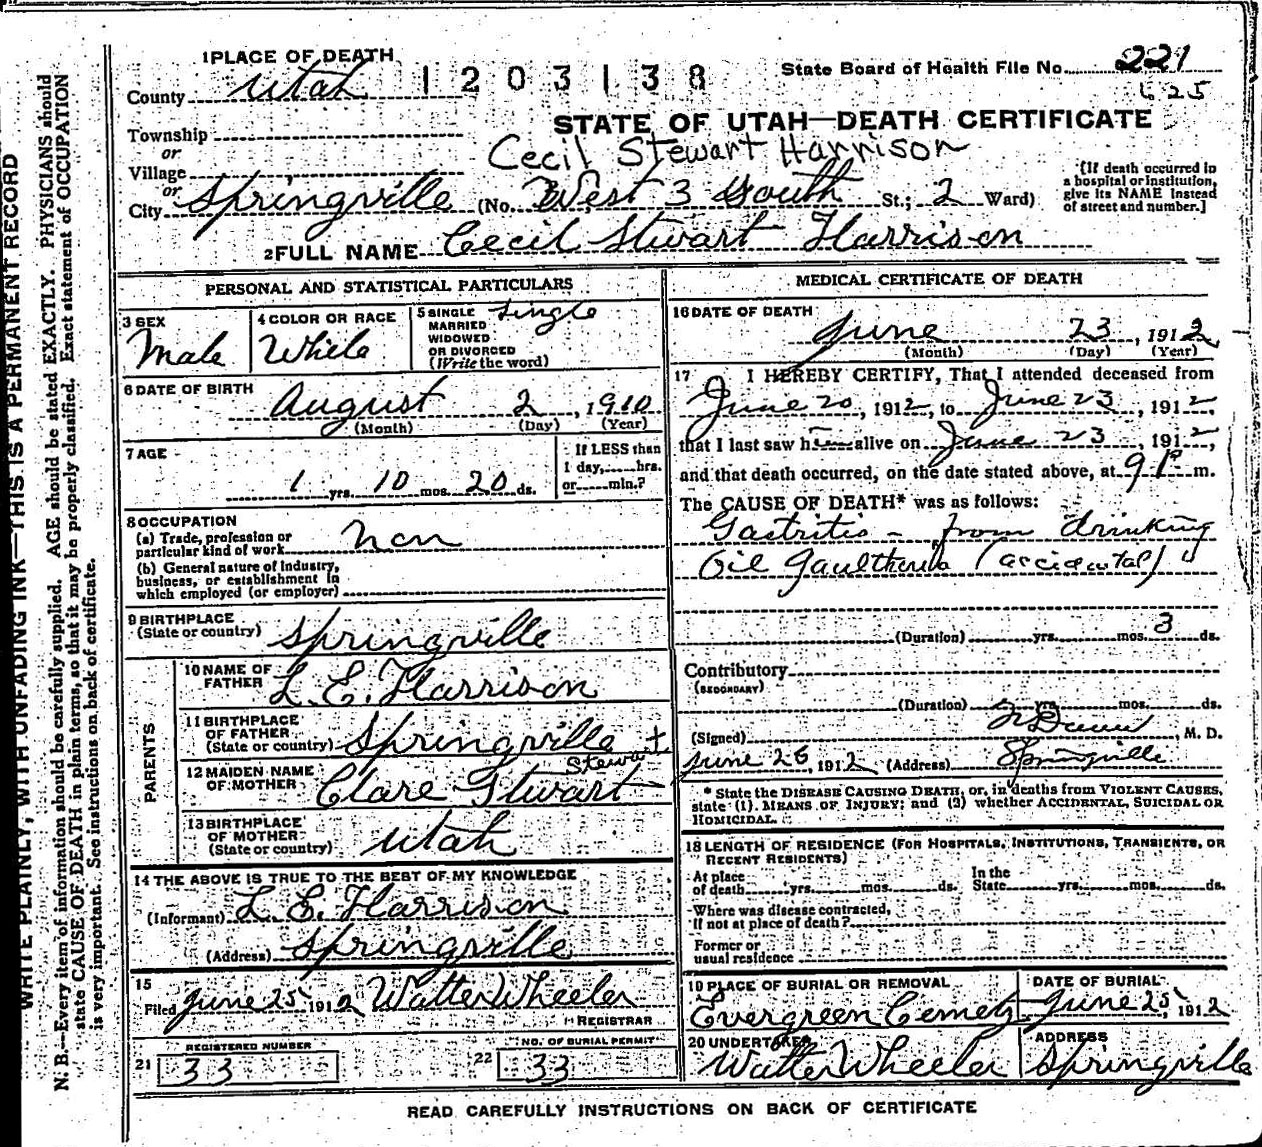 1 PLACE OF DEATH
County Utah
1203138
State Board of Health File No. 221
625
STATE OF UTAH—DEATH CERTIFICATE
Township
or
Village
or
City Springville (No. West 3 South St.; 2 Ward)
Cecil Stewart Harrison
[If death occurred in
a hospital or institution,
give its NAME instead
of street and number.]
2 FULL NAME Cecil Stwart Harrison
PERSONAL AND STATISTICAL PARTICULARS
3 SEX
Male
4 COLOR OR RACE
White
5 SINGLE
MARRIED
WIDOWED
OR DIVORCED
(Write the word)
Single
6 DATE OF BIRTH
August 2, 1910
(Month) (Day) (Year)
7 AGE
1 yrs. 10 mos. 20 ds.
If LESS than
1 day, hrs.
or min.?
8 OCCUPATION
(a) Trade, profession or
particular kind of work Non
(b) General nature of industry,
business, or establishment in
which employed (or employer)
9 BIRTHPLACE
(State or country) Springville
PARENTS
10 NAME OF
FATHER L. E. Harrison
11 BIRTHPLACE
OF FATHER
(State or country) Springville
12 MAIDEN NAME
OF MOTHER Clare Stwart
13 BIRTHPLACE
OF MOTHER
(State or country) Utah
14 THE ABOVE IS TRUE TO THE BEST OF MY KNOWLEDGE
(Informant) L. E. Harrison
(Address) Springville
15
Filed June 25 1912 Walter Wheeler
REGISTRAR
REGISTERED NUMBER
21 33
NO. OF BURIAL PERMIT
22 33
MEDICAL CERTIFICATE OF DEATH
16 DATE OF DEATH
June 23, 1912
(Month) (Day) (Year)
17 I HEREBY CERTIFY, That I attended deceased from
June 20, 1912, to June 23, 1912,
that I last saw h alive on June 23, 1912,
and that death occurred, on the date stated above, at 9 1 P m.
The CAUSE OF DEATH* was as follows:
Gastritis - from drinking
Oil Gaultheria (accidental)
(Duration) yrs. mos. 3 ds.
Contributory
(SECONDARY)
(Duration) yrs. mos. ds.
(Signed) M. D.
June 26, 1912 (Address) Springville
* State the DISEASE CAUSING DEATH, or, in deaths from VIOLENT CAUSES,
state (1) MEANS OF INJURY; and (2) whether ACCIDENTAL, SUICIDAL OR
HOMICIDAL.
18 LENGTH OF RESIDENCE (FOR HOSPITALS, INSTITUTIONS, TRANSIENTS, OR
RECENT RESIDENTS)
At place
of death yrs. mos. ds.
In the
State yrs. mos. ds.
Where was disease contracted,
If not at place of death?
Former or
usual residence
19 PLACE OF BURIAL OR REMOVAL
Evergreen Cemety
DATE OF BURIAL
June 25, 1912
20 UNDERTAKER
Walter Wheeler
ADDRESS
Springville
READ CAREFULLY INSTRUCTIONS ON BACK OF CERTIFICATE
WRITE PLAINLY, WITH UNFADING INK—THIS IS A PERMANENT RECORD
N. B.—Every item of information should be carefully supplied. AGE should be stated EXACTLY. PHYSICIANS should
state CAUSE OF DEATH in plain terms, so that it may be properly classified. Exact statement of OCCUPATION
is very important. See instructions on back of certificate.